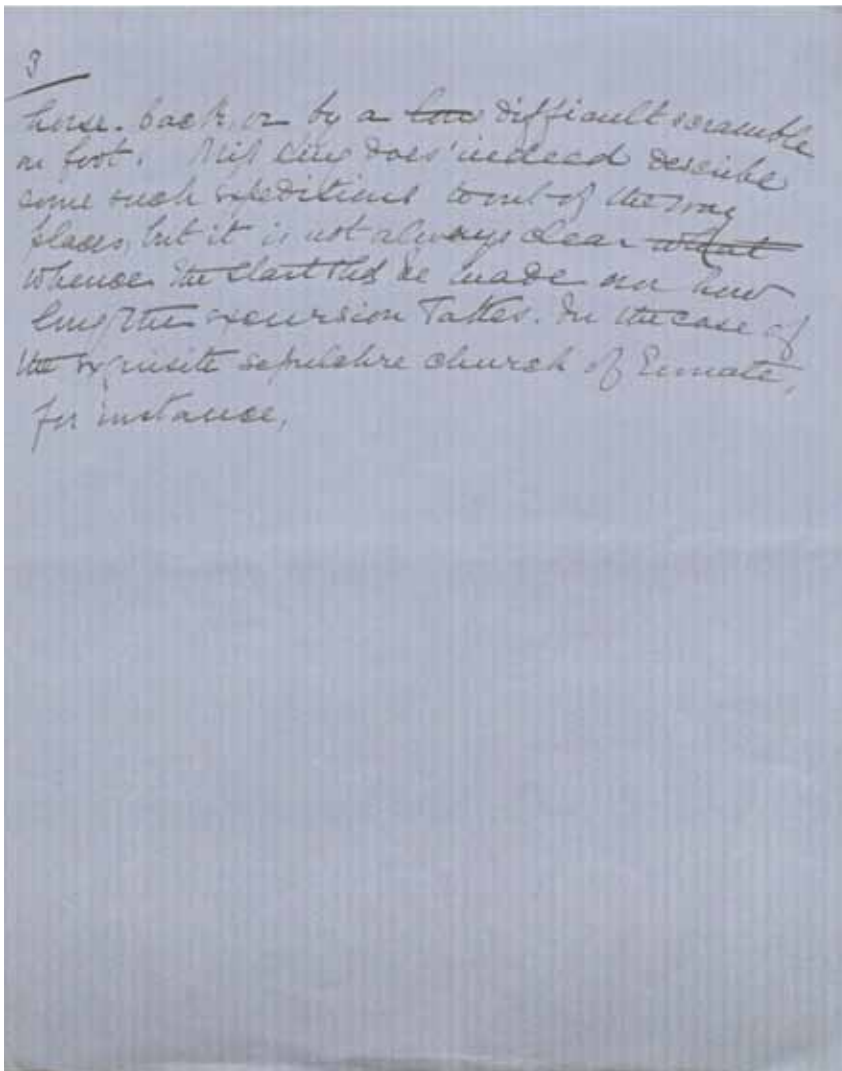 3
horse-back, or by a difficult scramble
on foot. Miss does indeed describe
some such expeditions to out of the way
places, but it is not always clear what
whence the start shd be made nor how
long the excursion takes. In the case of
the exquisite sepulchre church of Eunate,
for instance,